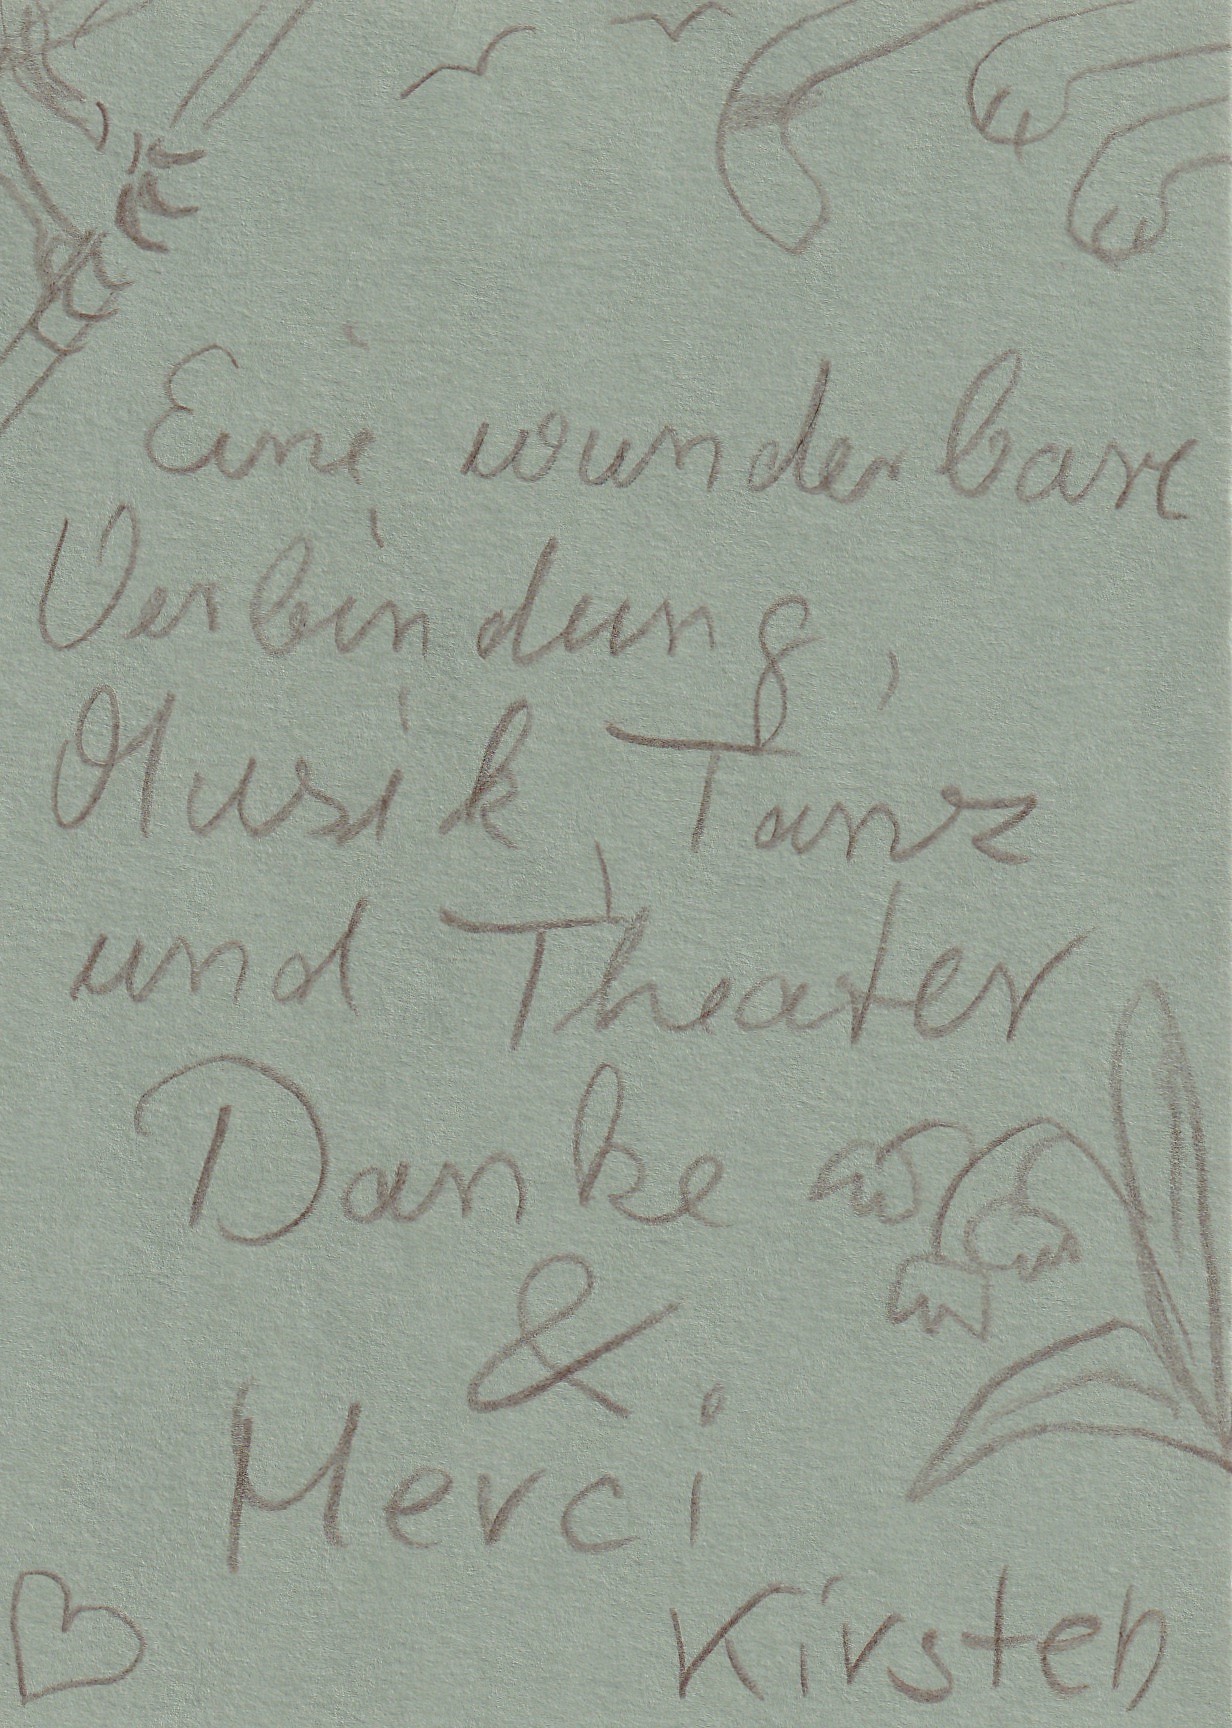 Eine wunderbare
Verbindung,
Musik, Tanz
und Theater
Danke
&
Merci
Kirsten